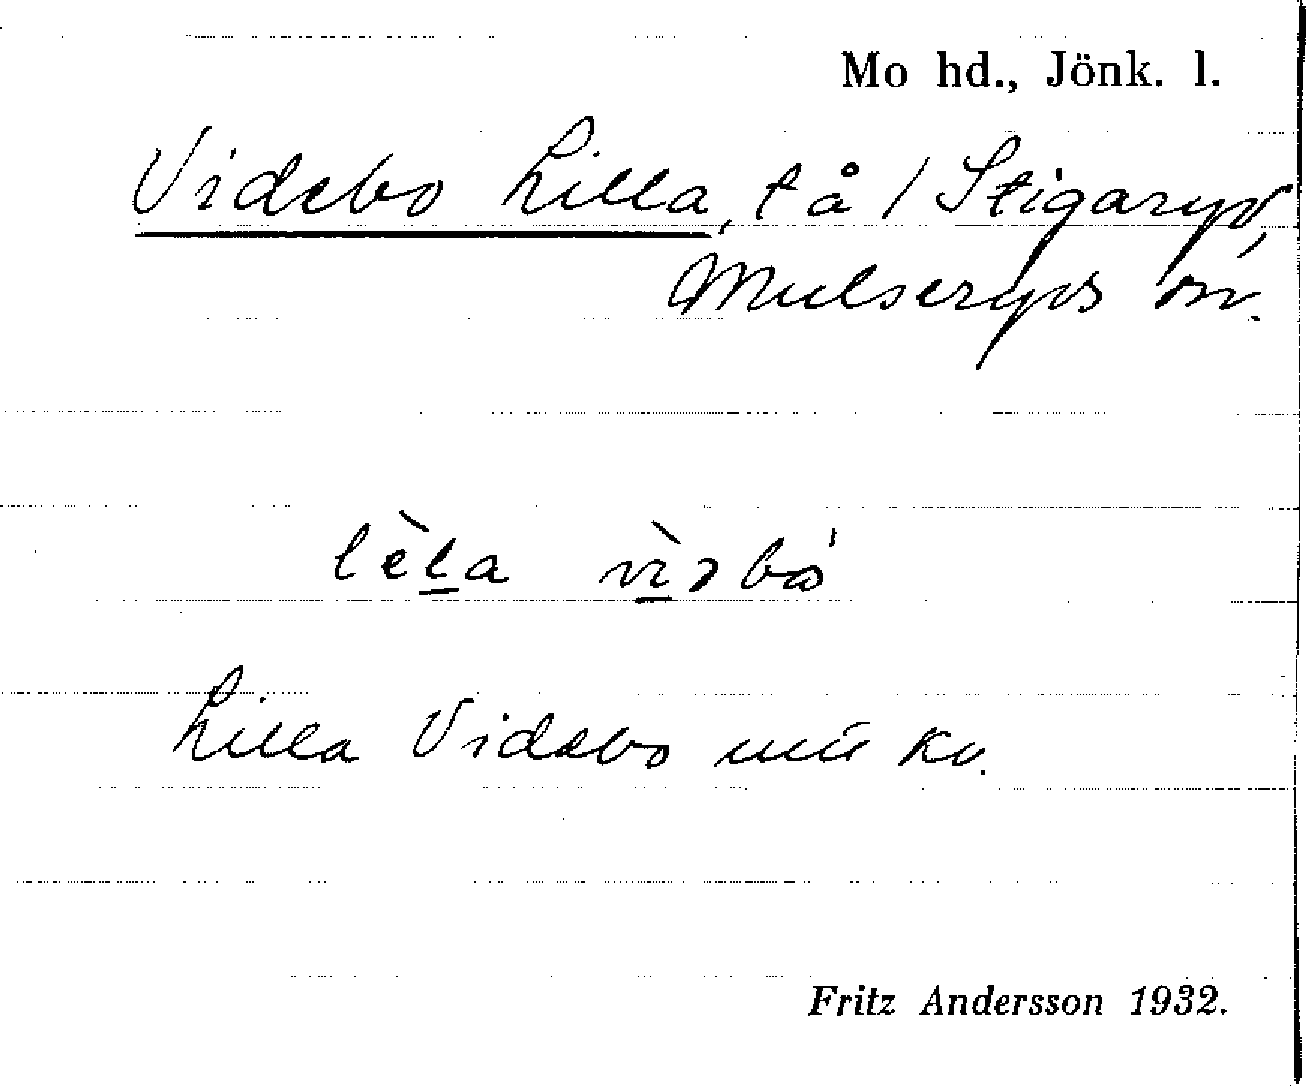 Mo hd., Jönk. l.
Videbo Lilla, t å / Stigaryd,
Mulseryds sn.
lèla vìəbó
Lilla Videbo kv.
Fritz Andersson 1932.